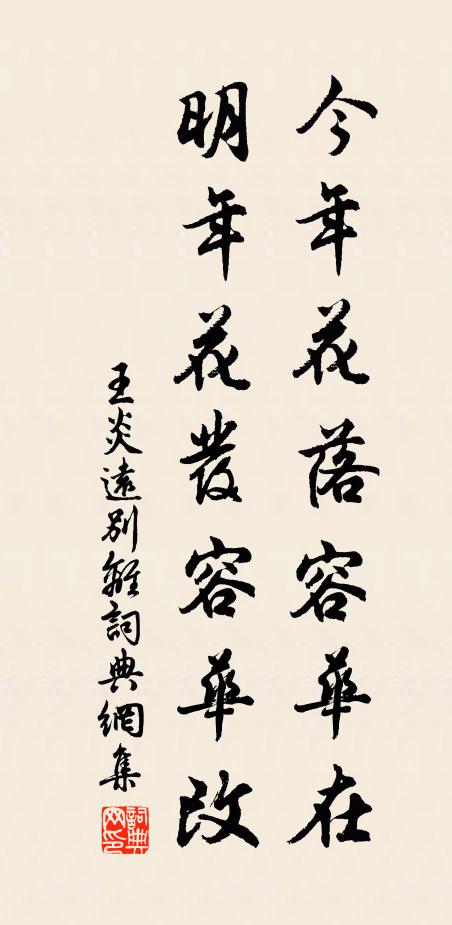 今年花落容華在
明年花發容華改
王炎遠別離詞典網集
詞典网印